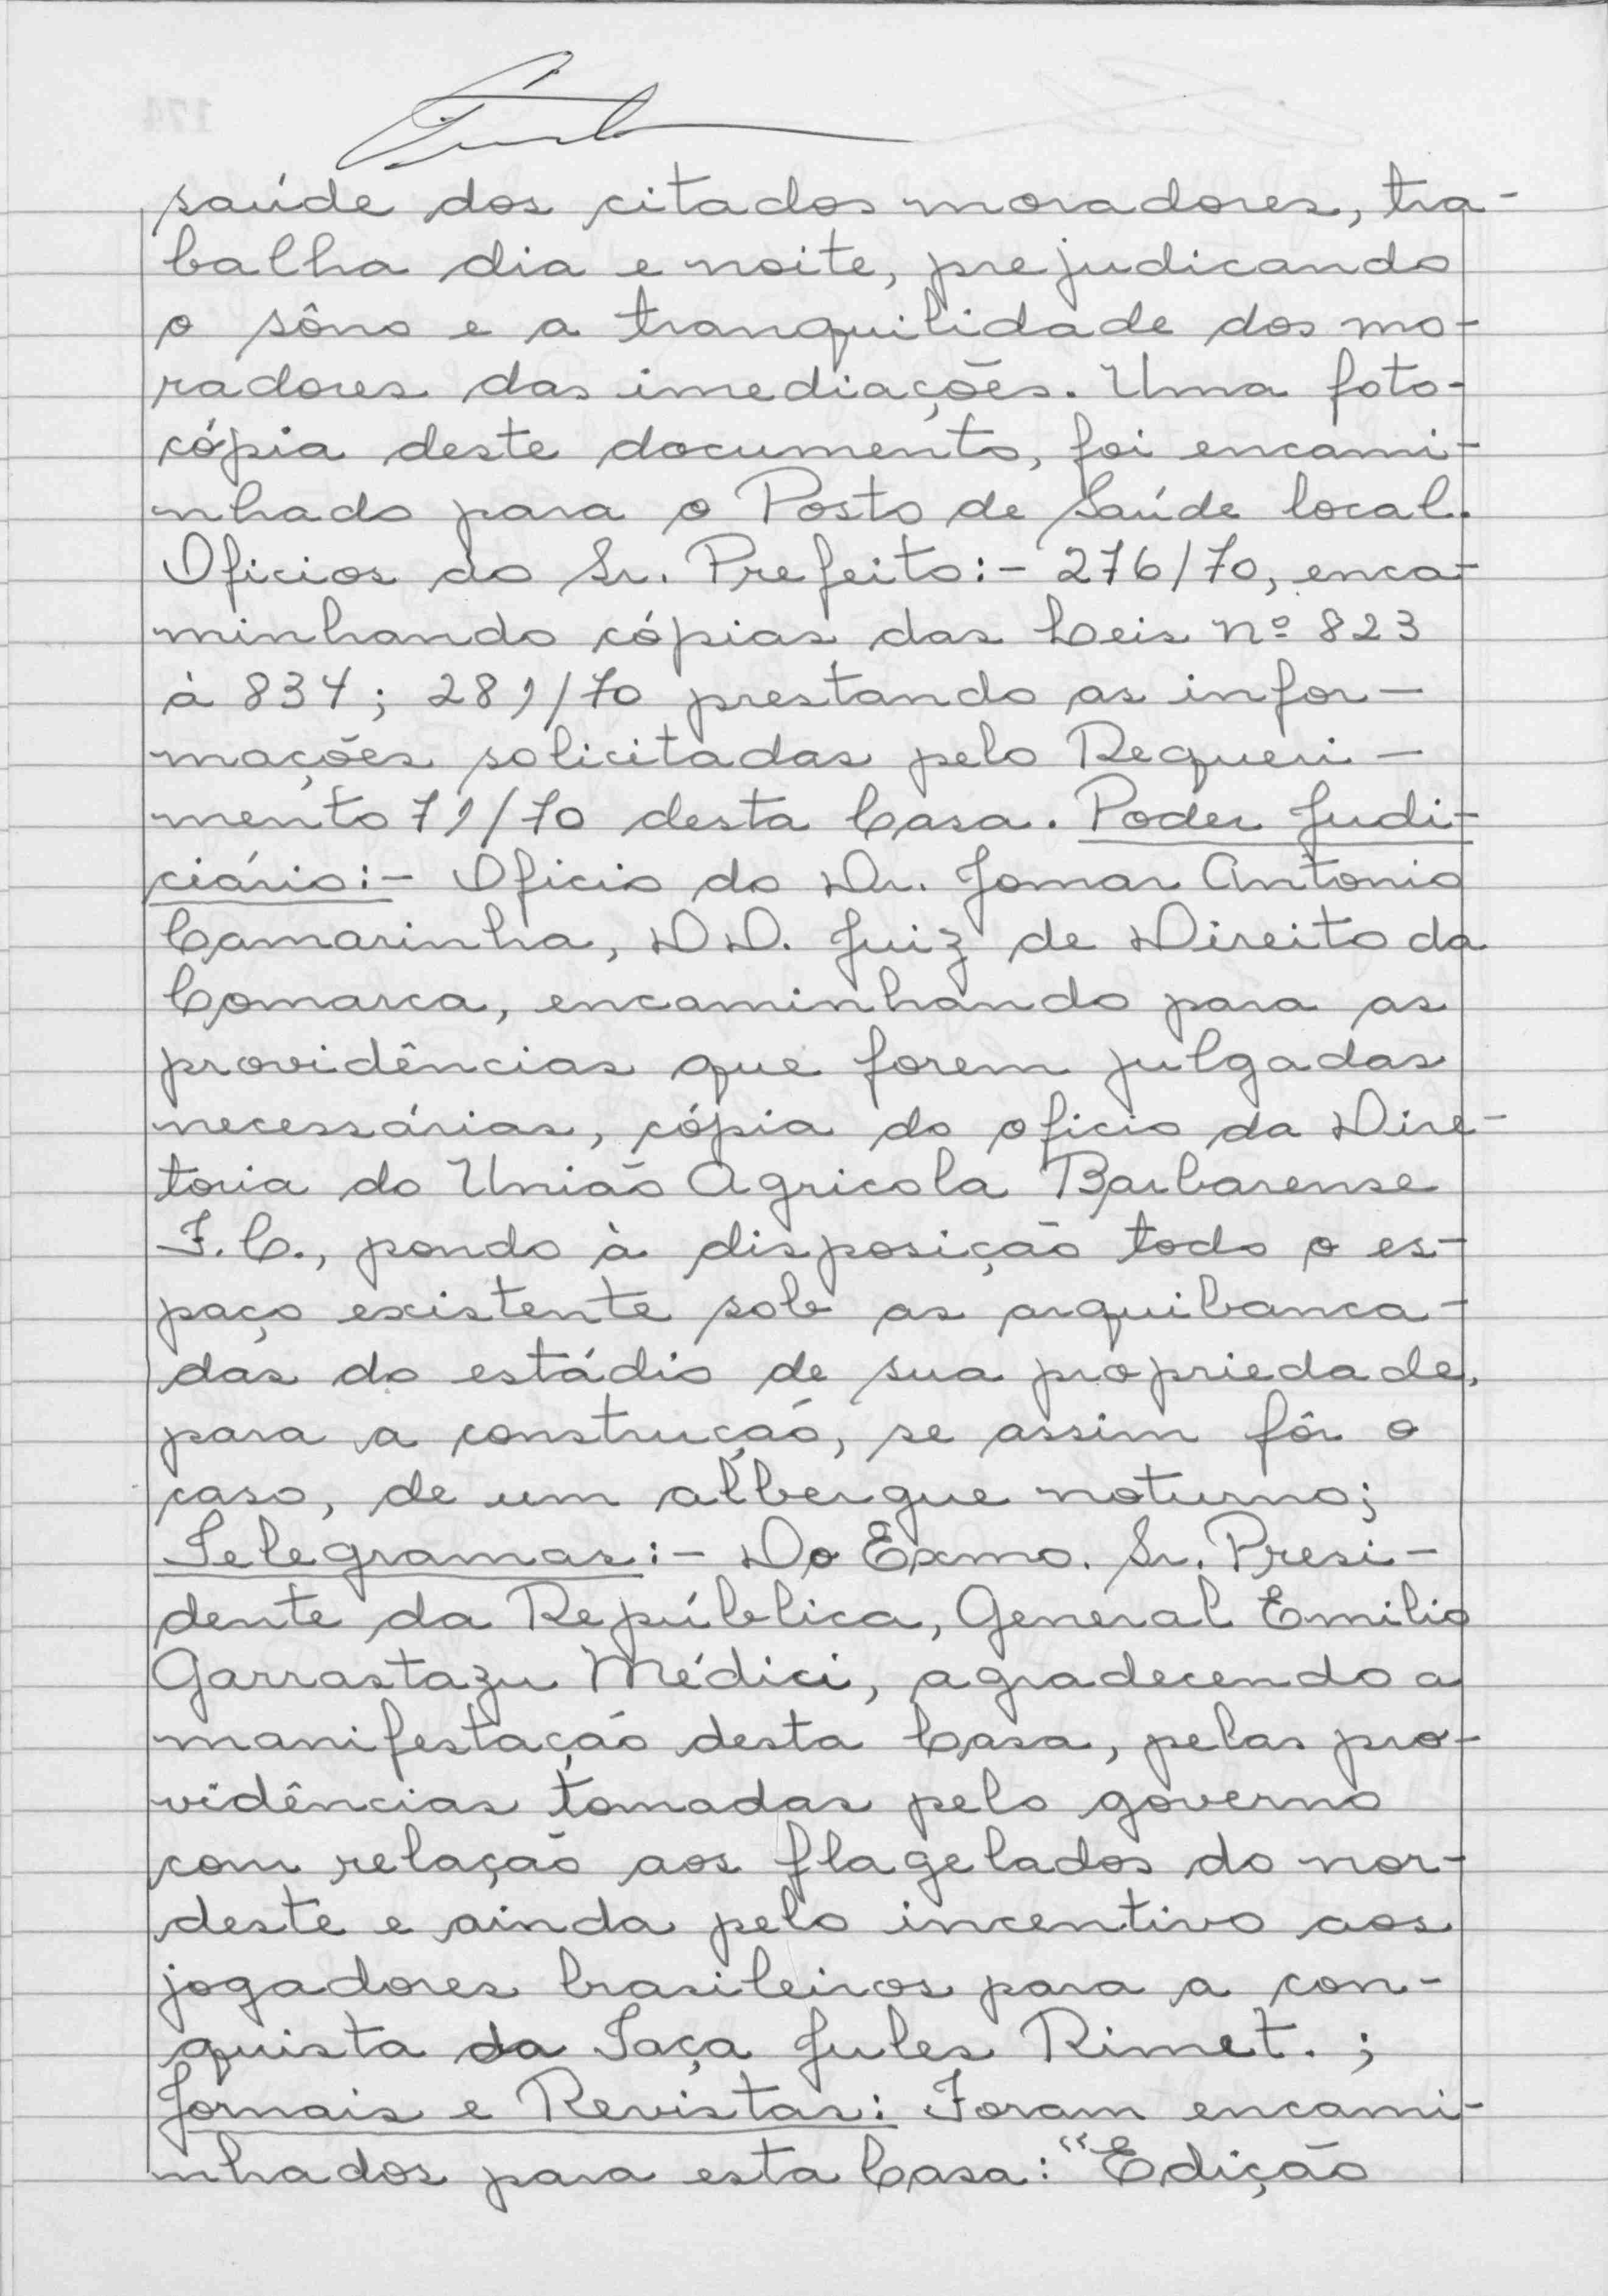 saúde dos citados moradores, tra-
balha dia e noite, prejudicando
o sôno e a tranquilidade dos mo-
radores das imediações. Uma foto-
cópia deste documento, foi encami-
nhado para o Posto de Saúde local.
Oficios do Sr. Prefeito:- 276/70, enca-
minhando cópias das Leis nº 823
à 834; 281/70 prestando as infor-
mações solicitadas pelo Requeri-
mento 71/70 desta Casa. Poder Judi-
ciário:- Oficio do Dr. Jomar Antonio
Camarinha, DD. Juiz de Direito da
Comarca, encaminhando para as
providências que forem julgadas
necessárias, cópia do oficio da Dire-
toria do União Agricola Barbarense
F.C., pondo à disposição todo o es-
paço existente sob as arquibanca-
das do estádio de sua propriedade,
para a construção, se assim fôr o
caso, de um albergue noturno;
Telegramas:- Do Exmo. Sr. Presi-
dente da República, General Emilio
Garrastazu Médici, agradecendo a
manifestação desta Casa, pelas pro-
vidências tomadas pelo governo
com relação aos flagelados do nor-
deste e ainda pelo incentivo aos
jogadores brasileiros para a con-
quista da Taça Jules Rimet. ;
Jornais e Revistas: Foram encami-
nhados para esta Casa: "Edição